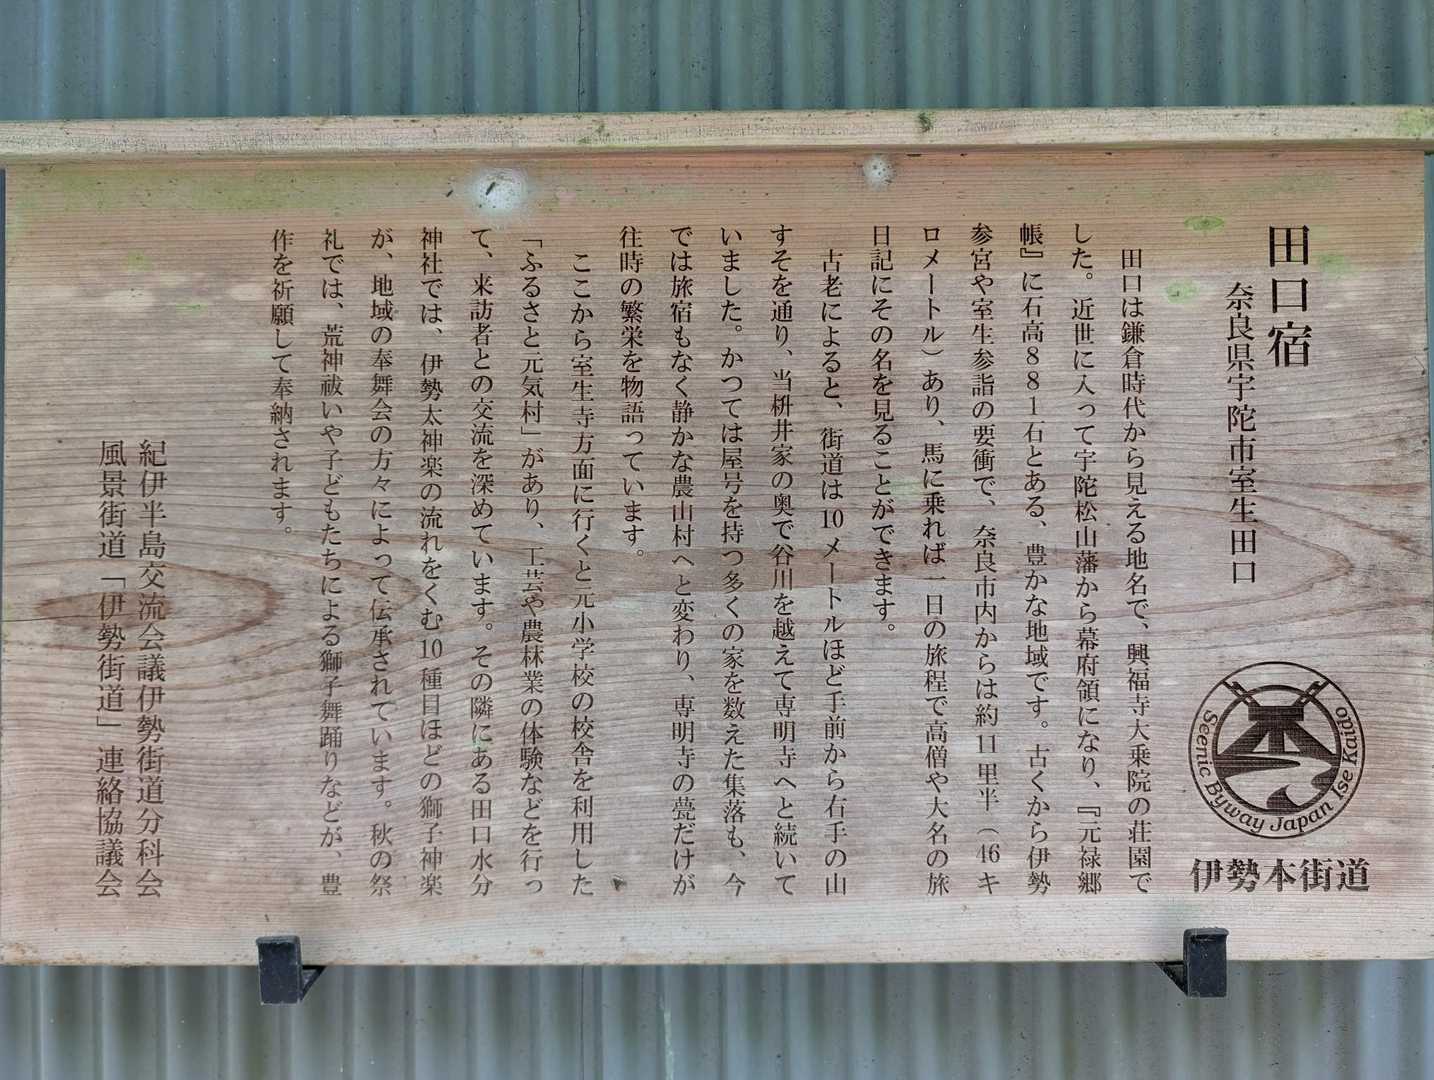 田口宿
奈良県宇陀市室生田口
田口は鎌倉時代から見える地名で、興福寺大乗院の荘園で
した。近世に入って宇陀松山藩から幕府領になり、『元禄郷
帳』に石高881石とある、豊かな地域です。古くから伊勢
参宮や室生参詣の要衝で、奈良市内からは約11里半（46キ
ロメートル）あり、馬に乗れば一日の旅程で高僧や大名の旅
日記にその名を見ることができます。
古老によると、街道は10メートルほど手前から右手の山
すそを通り、当枡井家の奥で谷川を越えて専明寺へと続いて
いました。かつては屋号を持つ多くの家を数えた集落も、今
では旅宿もなく静かな農山村へと変わり、専明寺の甍だけが
往時の繁栄を物語っています。
ここから室生寺方面に行くと元小学校の校舎を利用した
「ふるさと元気村」があり、工芸や農林業の体験などを行っ
て、来訪者との交流を深めています。その隣にある田口水分
神社では、伊勢太神楽の流れをくむ10種目ほどの獅子神楽
が、地域の奉舞会の方々によって伝承されています。秋の祭
礼では、荒神祓いや子どもたちによる獅子舞踊りなどが、豊
作を祈願して奉納されます。
紀伊半島交流会議伊勢街道分科会
風景街道「伊勢街道」連絡協議会
Seenic Byway Japan Ise Kaido
伊勢本街道